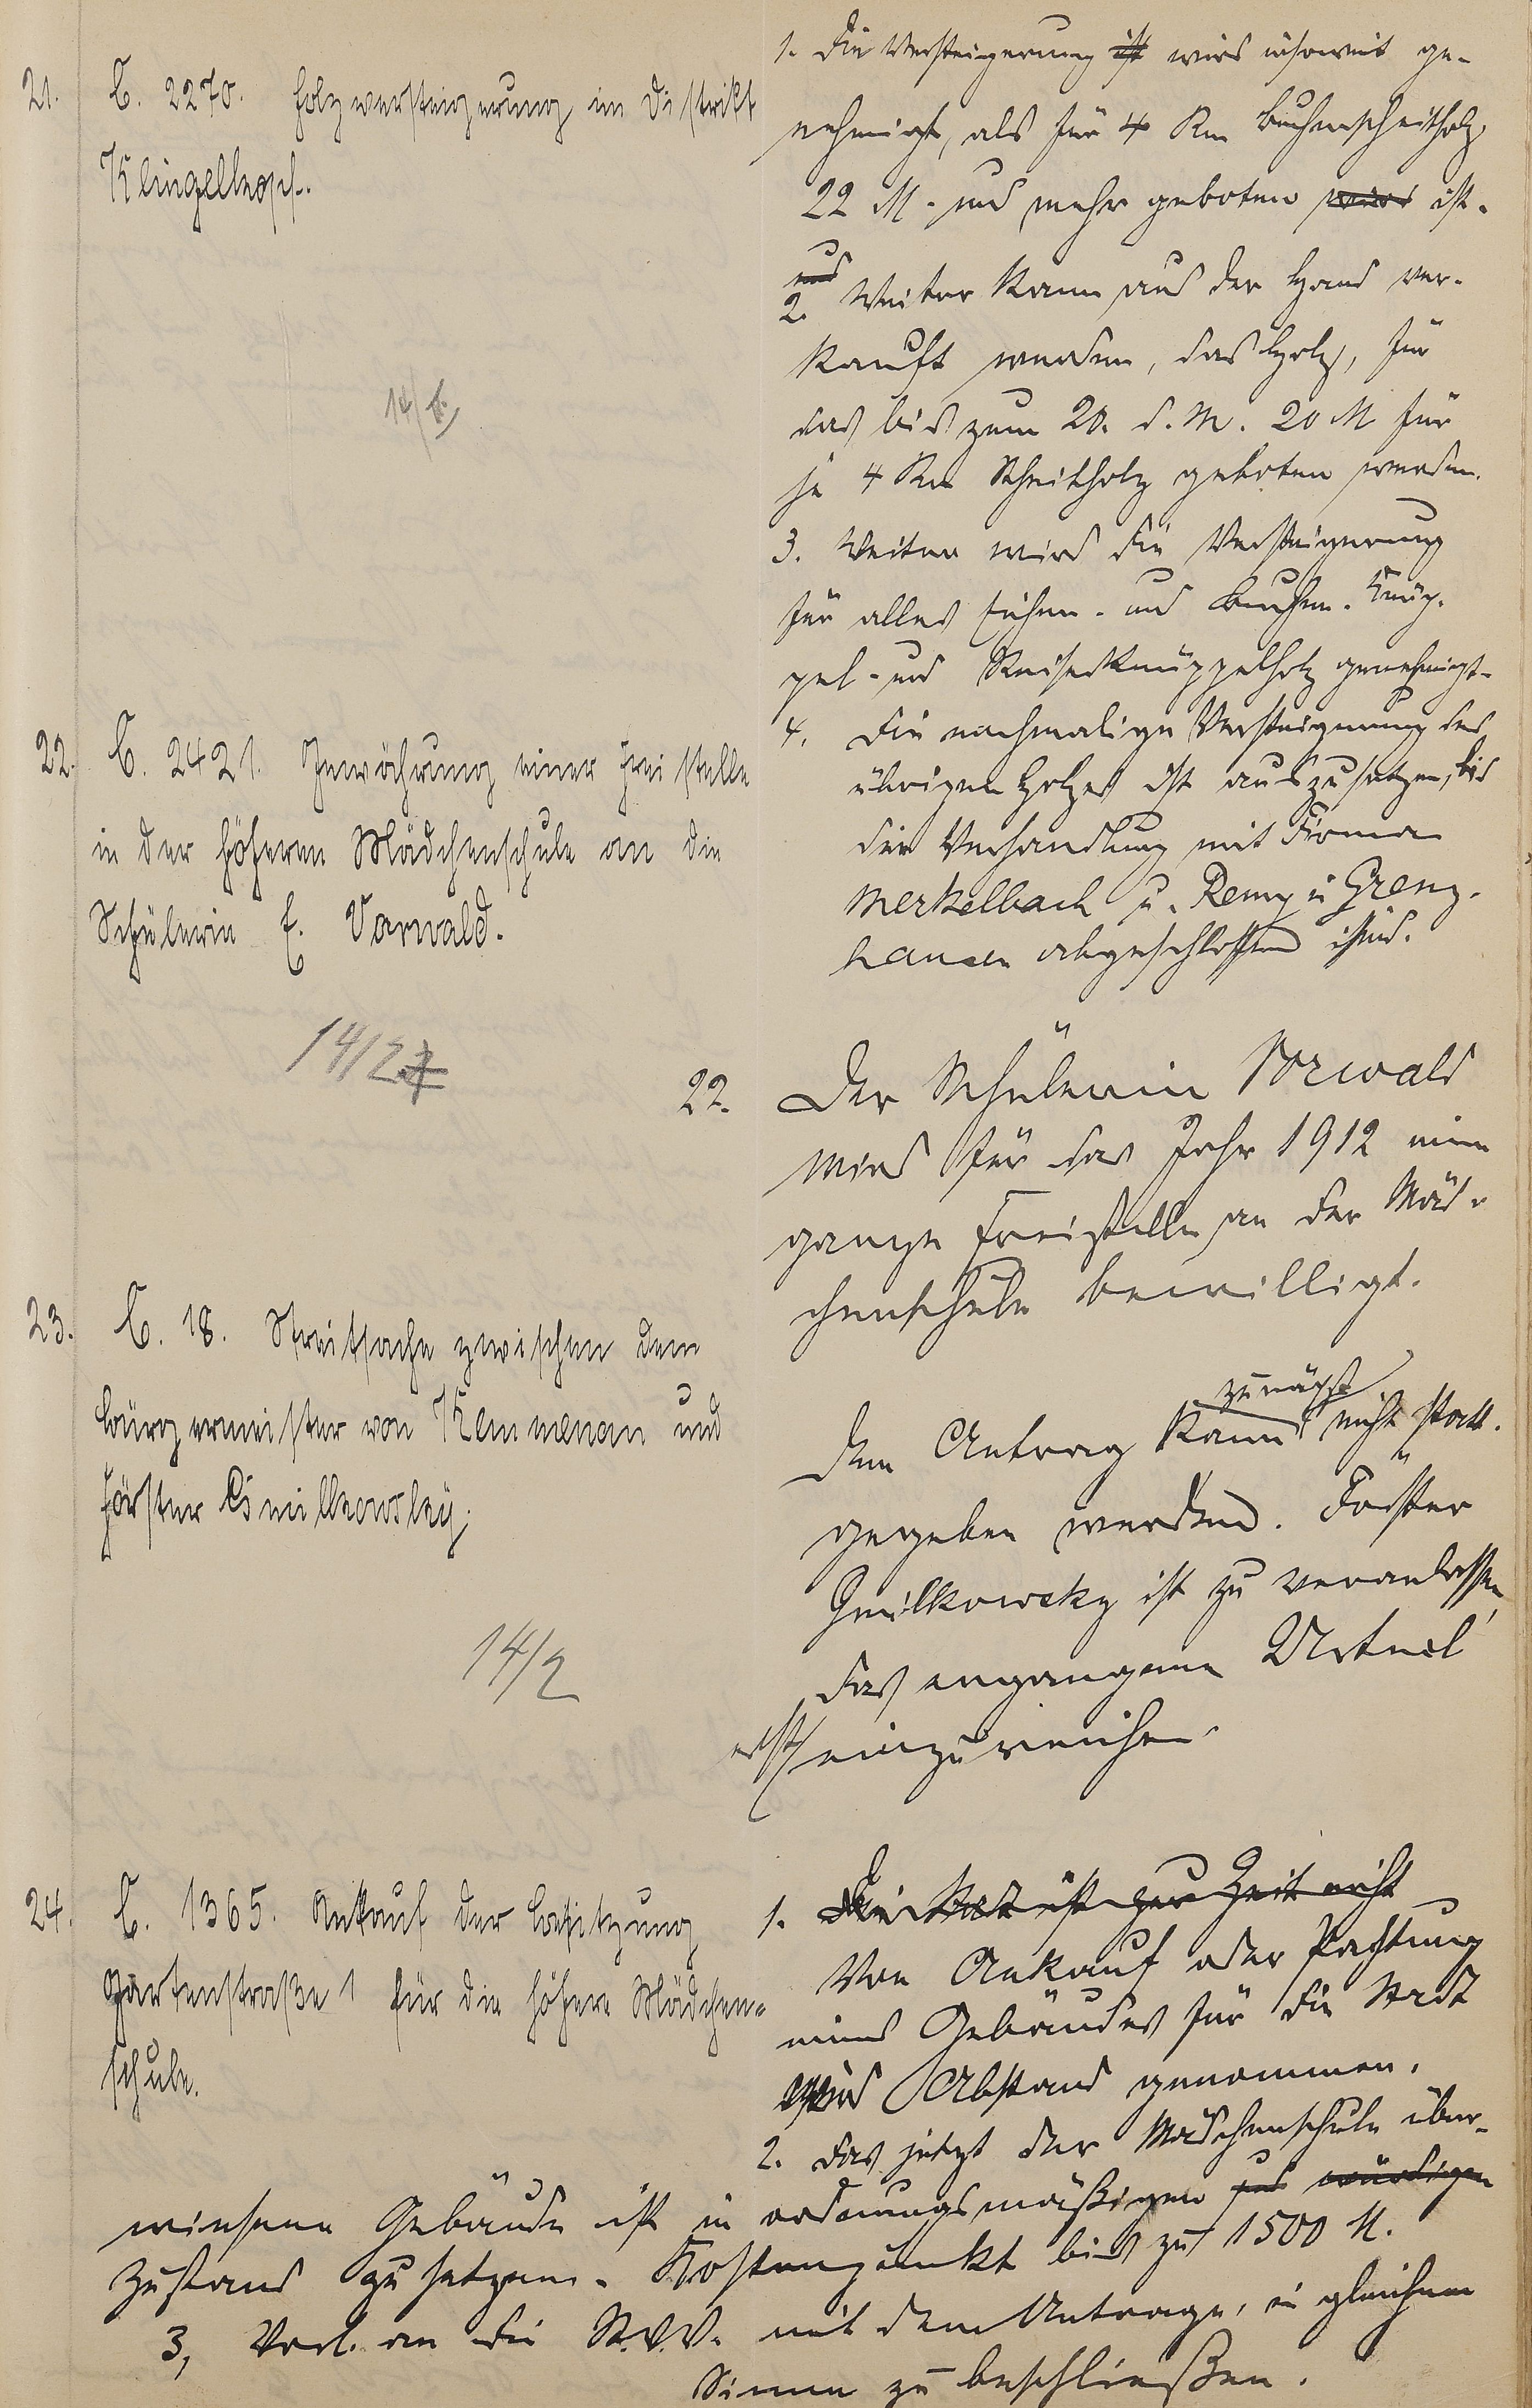 21. C. 2270. Holzversteigerung im Distrikt
Klingelkopf.
14/2
1. Die Versteigerung ist wird insoweit ge-
nehmigt, als für 4 Rm Buchenscheitholz
22 M. und mehr geboten wird ist.
und
2. Weiter kann aus der Hand ver-
kauft werden, das Holz, für
das bis zum 20. d. M. 20 M für
je 4 Rm Scheitholz geboten werden.
3. Weiter wird die Versteigerung
für alles Eichen- und Buchen-Knüp-
pel- und Reiserknüppelholz genehmigt.
4. Die nochmalige Versteigerung des
übrigen Holzes ist auszusetzen, bis
die Verhandlung mit Firma
Merkelbach u. Remy in Grenz-
hausen abgeschlossen sind.
22. C. 2421. Gewährung einer Freistelle
in der höheren Mädchenschule an die
Schülerin E. Vorwald.
14/2
22. Der Schülerin Vorwald
wird für das Jahr 1912 eine
ganze Freistelle an der Mäd-
chenschule bewilligt.
23. C. 18. Streitsache zwischen dem
Bürgermeister von Kemmenau und
Förster Gmilkowsky.
14/2
zunächst
Dem Antrag kann nicht statt-
gegeben werden. Förster
Gmilkowsky ist zu veranlassen,
das ergangene Urteil
erst einzureichen.
24. C. 1365. Ankauf der Besitzung
Gartenstraße 1 für die höhere Mädchen-
schule.
1. Die Stadt ist zur Zeit nicht
Von Ankauf oder Pachtung
eines Gebäudes für die Stadt
wird Abstand genommen.
2. Das jetzt der Mädchenschule über-
wiesene Gebäude ist in ordnungsmäßigen und würdigen
Zustand zu setzen. Kostenpunkt bis zu 1500 M.
3, Vorl. an die St.V.V. mit dem Antrage, in gleichem
Sinne zu beschließen.